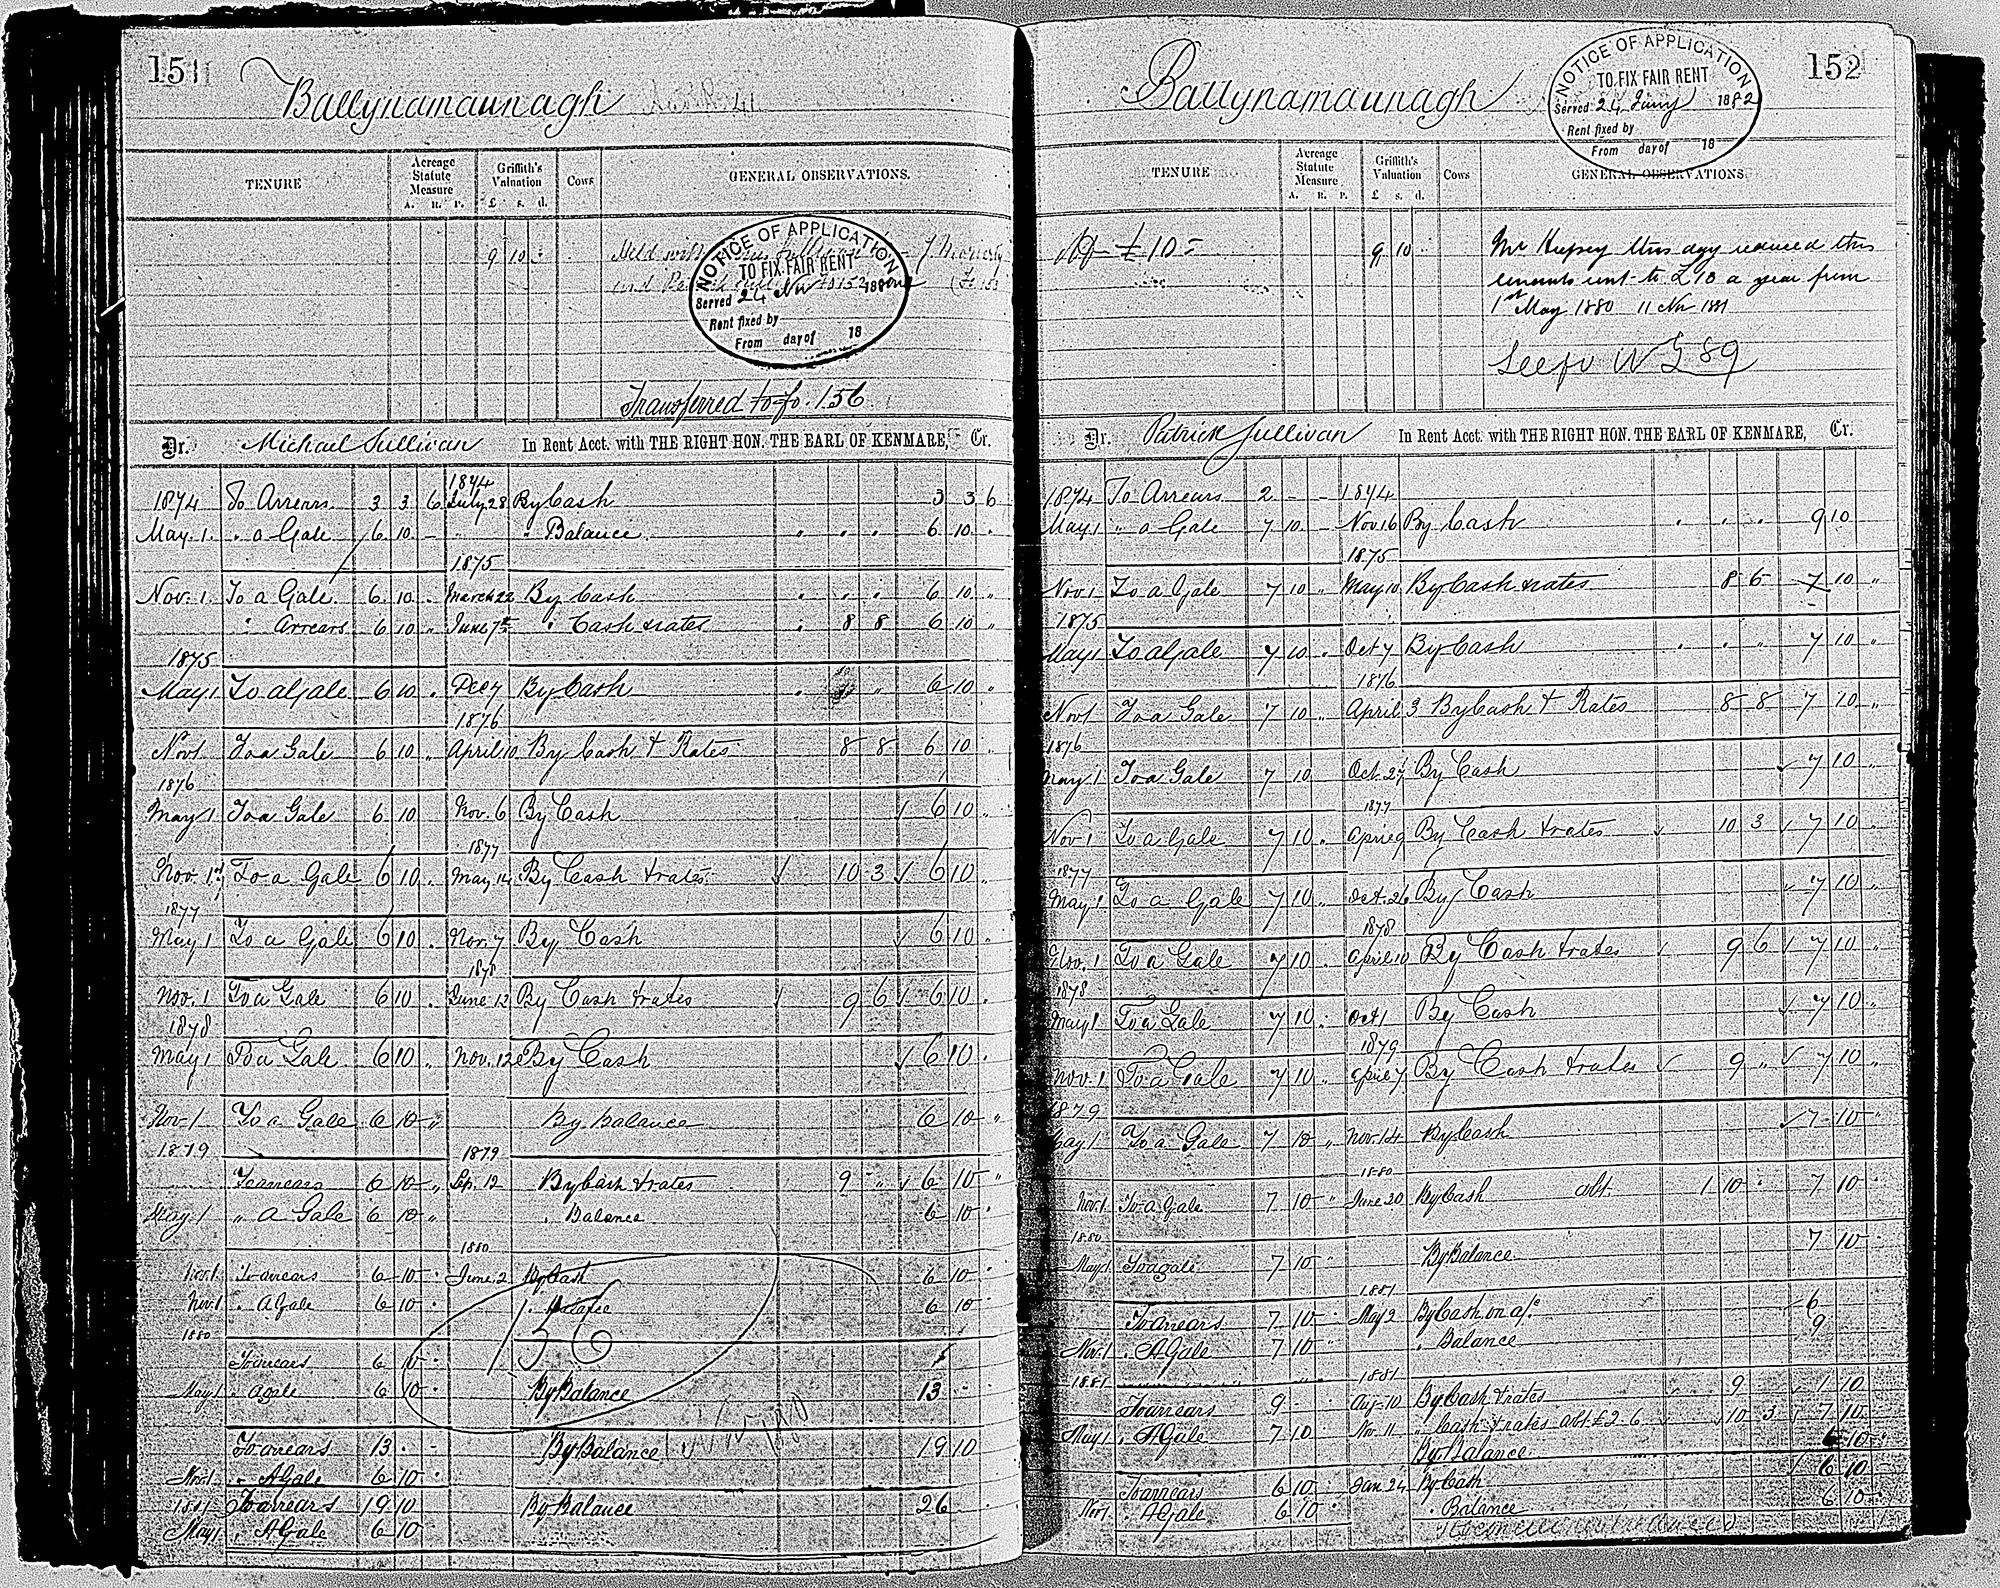 151
Ballynamaunagh
TENURE
Acreage Statute Measure
A. R. P.
Griffith's Valuation
£ s. d.
Cows
GENERAL OBSERVATIONS.
9 10
Held with
NOTICE OF APPLICATION
TO FIX FAIR RENT
Served 24 Nov 188
Rent fixed by
From day of 18
Transferred to fo. 156
Dr. Michael Sullivan In Rent Acct. with THE RIGHT HON. THE EARL OF KENMARE, Cr.
1874 To Arrears 3 3 6 1874 July 28 By Cash 3 3 6
May 1. " a Gale 6 10 - " " Balance 6 10 "
1875
Nov. 1. To a Gale 6 10 " March 22 By Cash 6 10 "
" Arrears 6 10 " June 7th " Cash & rates 8 8 6 10 "
1875
May 1 To a Gale 6 10 " Dec 7 By Cash 6 10 "
1876
Nov 1 To a Gale 6 10 " April 10 By Cash & Rates 8 8 6 10 "
1876
May 1 To a Gale 6 10 Nov. 6 By Cash ✓ 6 10 "
1877
Nov. 1st To a Gale 6 10 " May 14 By Cash & rates ✓ 10 3 ✓ 6 10 "
1877
May 1 To a Gale 6 10 " Nov. 7 By Cash ✓ 6 10 "
1878
Nov. 1 To a Gale 6 10 " June 12 By Cash & rates ✓ 9 6 ✓ 6 10 "
1878
May 1 To a Gale 6 10 " Nov. 12 By Cash ✓ 6 10 "
Nov 1 To a Gale 6 10 " By Balance 6 10 "
1879 1879
To arrears 6 10 " Sep. 12 By Cash & rates 9 " ✓ 6 10 "
May 1 " A Gale 6 10 " " Balance 6 10 "
1880
Nov 1 To arrears 6 10 " June 2 By Cash 6 10 "
Nov 1 " A Gale 6 10 " " Balance 6 10 "
1880
156
To arrears 6 10 "
May 1 " a gale 6 10 " By Balance 13 " "
To arrears 13 " - By Balance 19 10
Nov 1 " A Gale 6 10 "
1881 To arrears 19 10 By Balance 26 "
May 1 " A Gale 6 10
152
Ballynamaunagh
NOTICE OF APPLICATION
TO FIX FAIR RENT
Served 24 Jany 1882
Rent fixed by
From day of 18
TENURE
Acreage Statute Measure
A. R. P.
Griffith's Valuation
£ s. d.
Cows
GENERAL OBSERVATIONS
£10 9 10
Mr Hussey this day reduced this
tenants rent to £10 a year from
1st May 1880 11 Nov 1881
See fo 89
Dr. Patrick Sullivan In Rent Acct. with THE RIGHT HON. THE EARL OF KENMARE, Cr.
1874 To Arrears 2 - - 1874
May 1 " a Gale 7 10 - Nov 16 By Cash 9 10
1875
Nov 1 To a Gale 7 10 " May 10 By Cash & rates 8 6 7 10 "
1875
May 1 To a Gale 7 10 " Oct 7 By Cash 7 10 "
1876
Nov 1 To a Gale 7 10 " April 3 By Cash & Rates 8 8 7 10 "
1876
May 1 To a Gale 7 10 Oct. 27 By Cash ✓ 7 10 "
1877
Nov 1 To a Gale 7 10 " April 9 By Cash & rates ✓ 10 3 ✓ 7 10 "
1877
May 1 To a Gale 7 10 " Oct. 26 By Cash ✓ 7 10 "
1878
Nov. 1 To a Gale 7 10 " April 10 By Cash & rates ✓ 9 6 ✓ 7 10 "
1878
May 1 To a Gale 7 10 " Oct 1 By Cash ✓ 7 10 "
1879
Nov. 1 To a Gale 7 10 " April 7 By Cash & rates ✓ 9 " ✓ 7 10 "
1879
May 1 To a Gale 7 10 " Nov. 14 By Cash ✓ 7 10 "
1880
Nov. 1 To a Gale 7 10 " June 20 By Cash abt. 1 10 " 7 10 "
1880
May 1 To a gale 7 10 " By Balance 7 10 "
1881
To arrears 7 10 " May 2 By Cash on a/c ✓ 6
Nov. 1 " A Gale 7 10 " " Balance 9
1881 1881
To arrears 9 " Aug 10 By Cash & rates ✓ 9 ✓ 1 10
May 1 " A Gale 7 10 Nov. 11 " Cash & rates abt £2-6 ✓ 10 3 ✓ 7 10 "
By Balance 6 10 "
To arrears 6 10 " Jan 24 By Cash ✓ 6 10 "
Nov 1 " A Gale 6 10 " " Balance 6 10 "